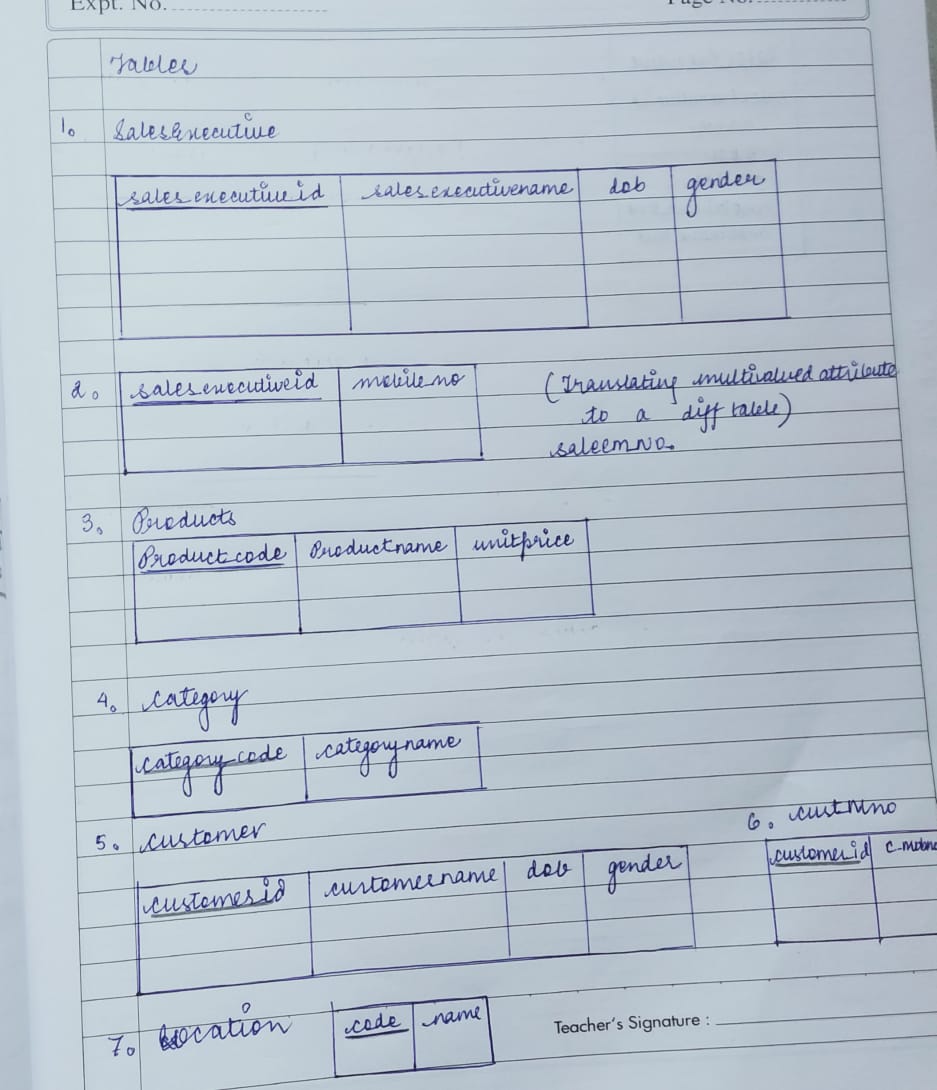 Expt. No.
Page No.
Tables
1. SalesExecutive
salesexecutiveid salesexecutivename dob gender
2. salesexecutiveid mobileno (Translating multivalued attribute
to a diff table)
saleemNo.
3. Products
Productcode Productname unitprice
4. category
categorycode categoryname
5. customer
6. custMno
customerid c-mobno
customerid customername dob gender
7. Location code name
Teacher's Signature :